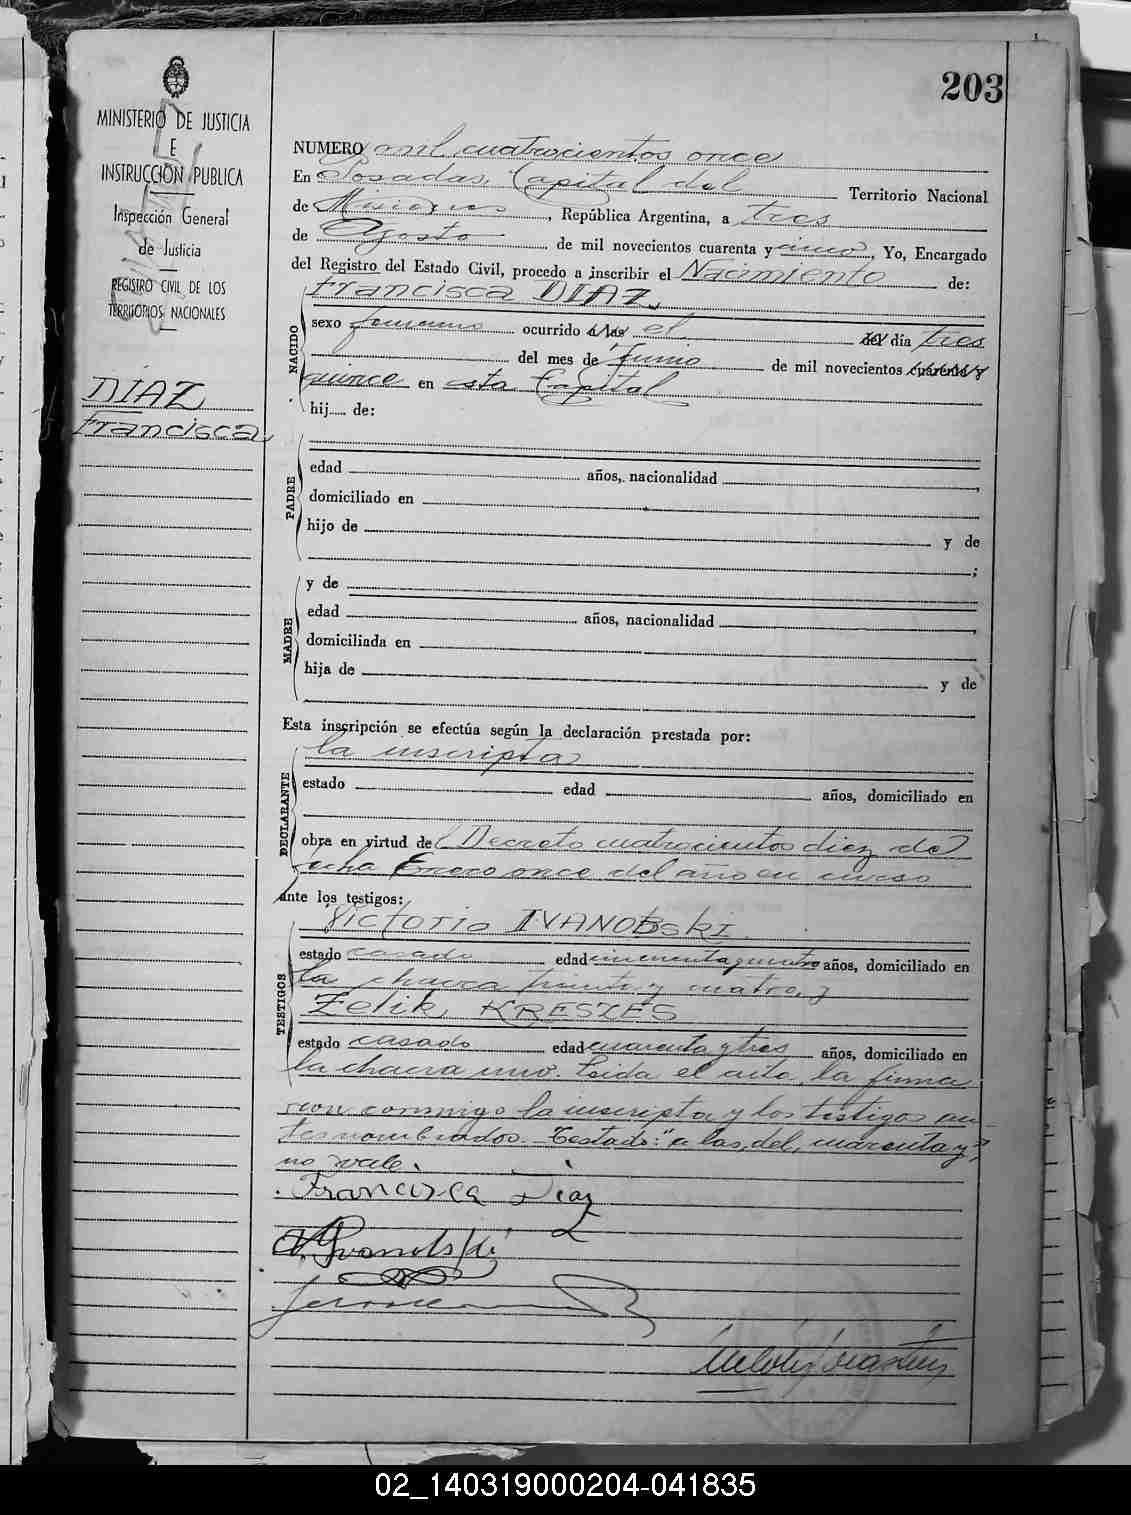 203
MINISTERIO DE JUSTICIA
E
INSTRUCCION PUBLICA
Inspección General
de Justicia
REGISTRO CIVIL DE LOS
TERRITORIOS NACIONALES
DIAZ
Francisca
NUMERO mil cuatrocientos once
En Posadas, Capital del Territorio Nacional
de Misiones, República Argentina, a tres
de Agosto de mil novecientos cuarenta y cinco, Yo, Encargado
del Registro del Estado Civil, procedo a inscribir el Nacimiento de:
NACIDO
Francisca DIAZ
sexo femenino ocurrido a las el del día tres
del mes de Junio de mil novecientos cuarenta y
quince en esta Capital
hij..... de:
PADRE
edad años, nacionalidad
domiciliado en
hijo de y de
;
MADRE
y de
edad años, nacionalidad
domiciliada en
hija de y de
Esta inscripción se efectúa según la declaración prestada por:
DECLARANTE
la inscripta
estado edad años, domiciliado en
obra en virtud del Decreto cuatrocientos diez de
fecha Enero once del año en curso
ante los testigos:
TESTIGOS
Victorio IVANOBSKI
estado casado edad cincuenta y cuatro años, domiciliado en
la chacra treinta y cuatro, y
Zelik KRESZES
estado casado edad cuarenta y tres años, domiciliado en
la chacra uno. Leida el acta, la firma
ron conmigo la inscripta y los testigos an-
tes nombrados. Testado: "a las, del, cuarenta y",
no vale.
Francisca Diaz
V. Ivanobski
02_140319000204-041835